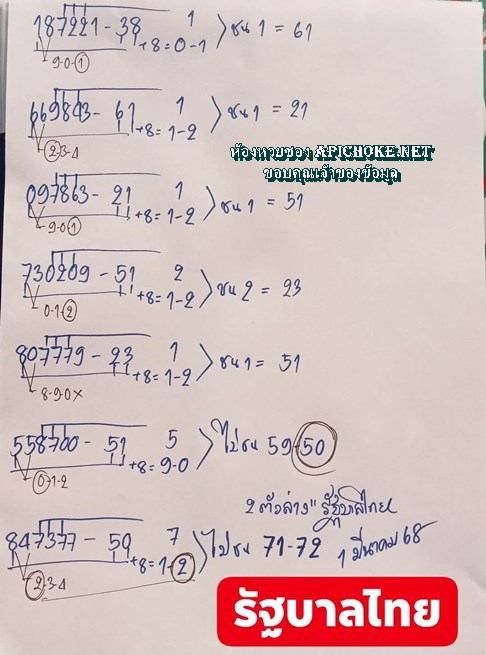 187221 - 38 1 > ชน 1 = 61
+8 = 0-1
9-0-1
669843 - 61 1 > ชน 1 = 21
+8 = 1-2
2-3-4
ห้องหวยซอง APICHOKE.NET
ขอบคุณเจ้าของข้อมูล
097863 - 21 1 > ชน 1 = 51
+8 = 1-2
9-0-1
730209 - 51 2 > ชน 2 = 23
+8 = 1-2
0-1-2
807779 - 23 1 > ชน 1 = 51
+8 = 1-2
8-9-0x
558700 - 51 5 > ไปชน 59-50
+8 = 9-0
0-1-2
2 ตัวล่าง " รัฐบาลไทย
847377 - 50 7 > ไปชน 71-72
1 มีนาคม 68
+8 = 1-2
2-3-4
รัฐบาลไทย